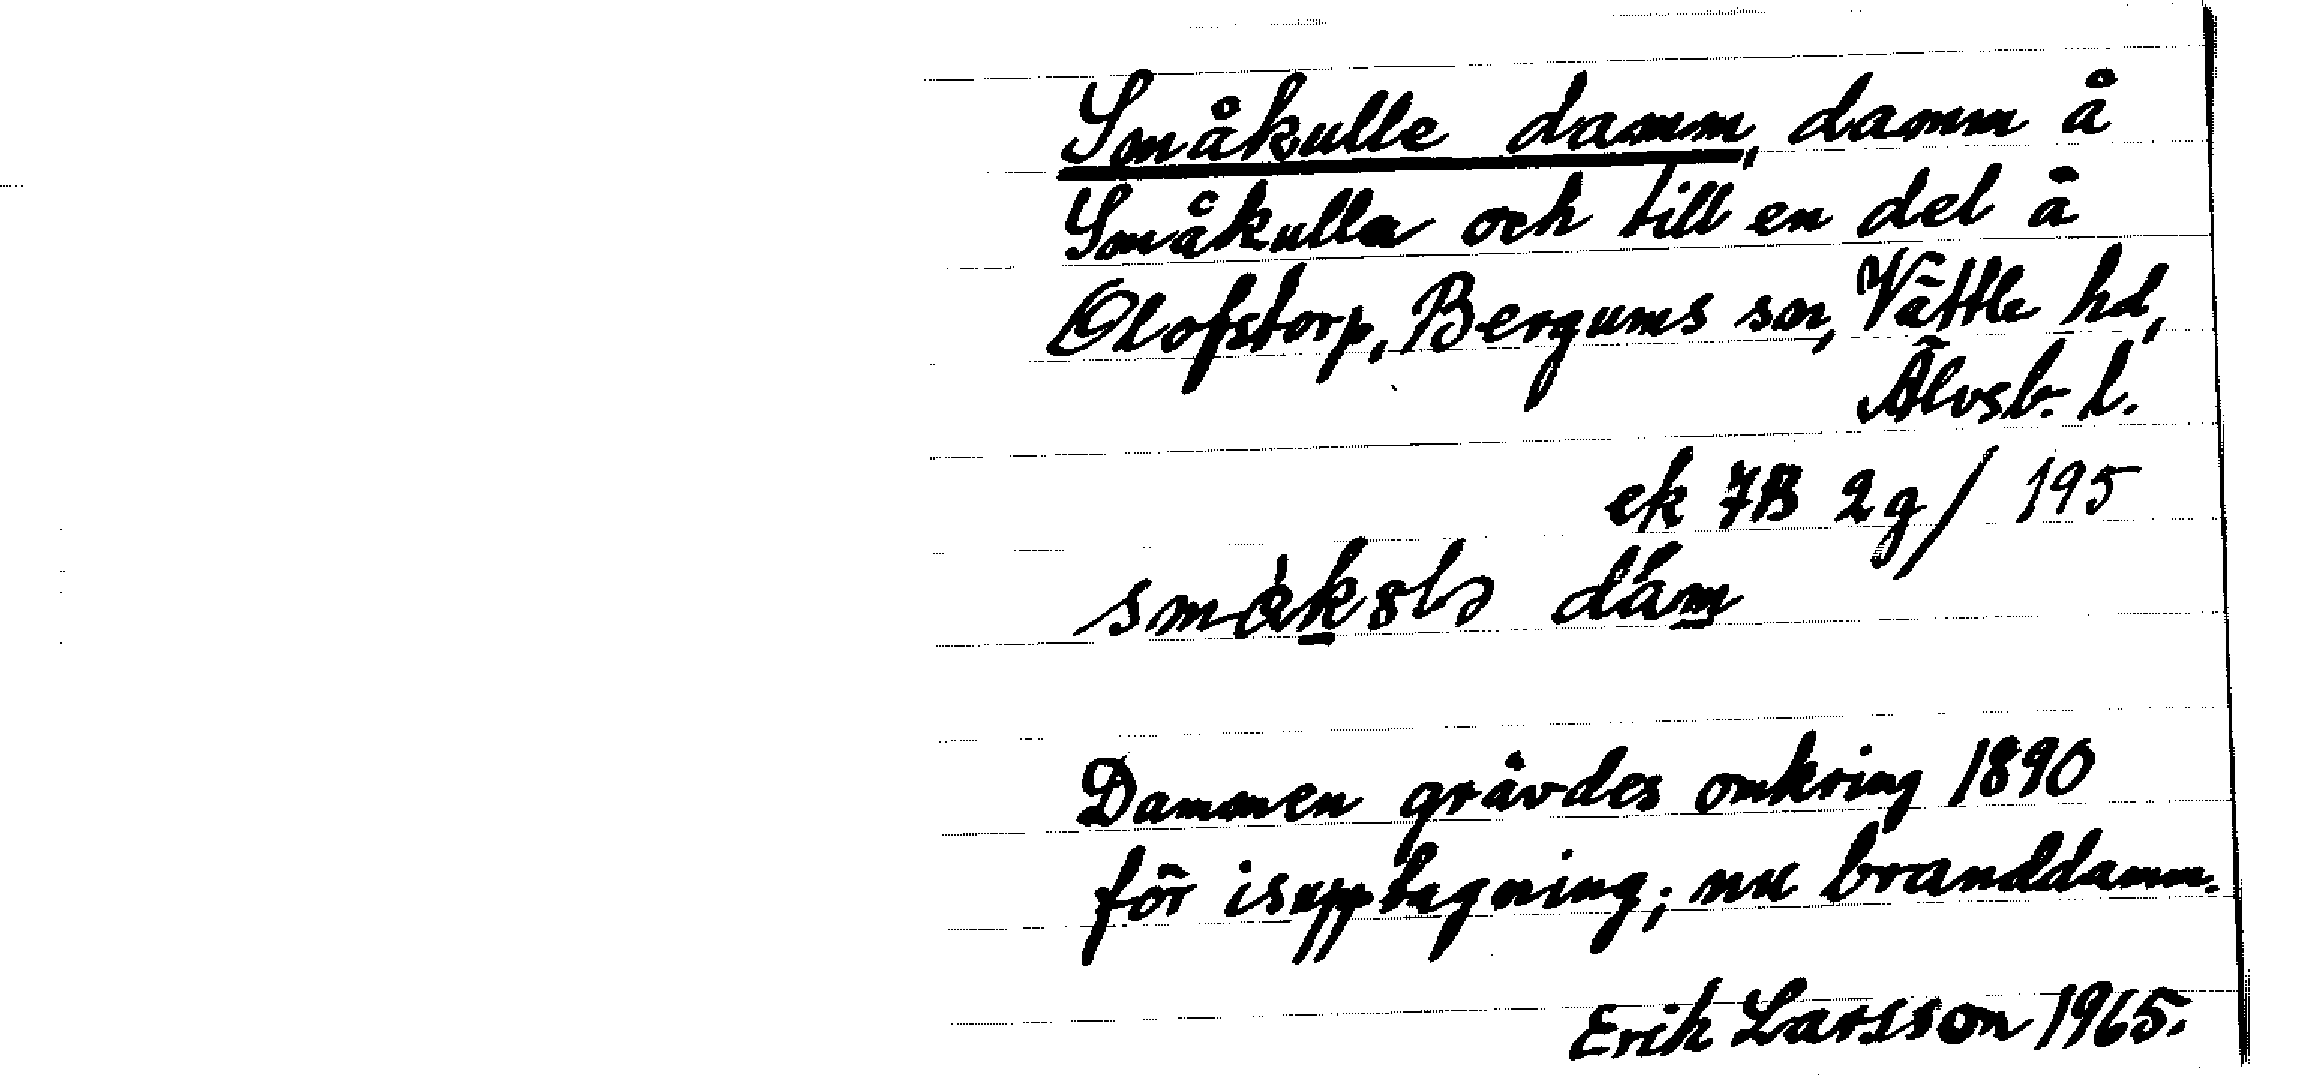 Småkulle damm, damm å
Småkulla och till en del å
Olofstorp, Bergums sn, Vättle hd,
Älvsb. l.
ek 7B 2g/ 195
dám
Dammen grävdes omkring 1890
för isupptagning; nu branddamm.
Erik Larsson 1965.